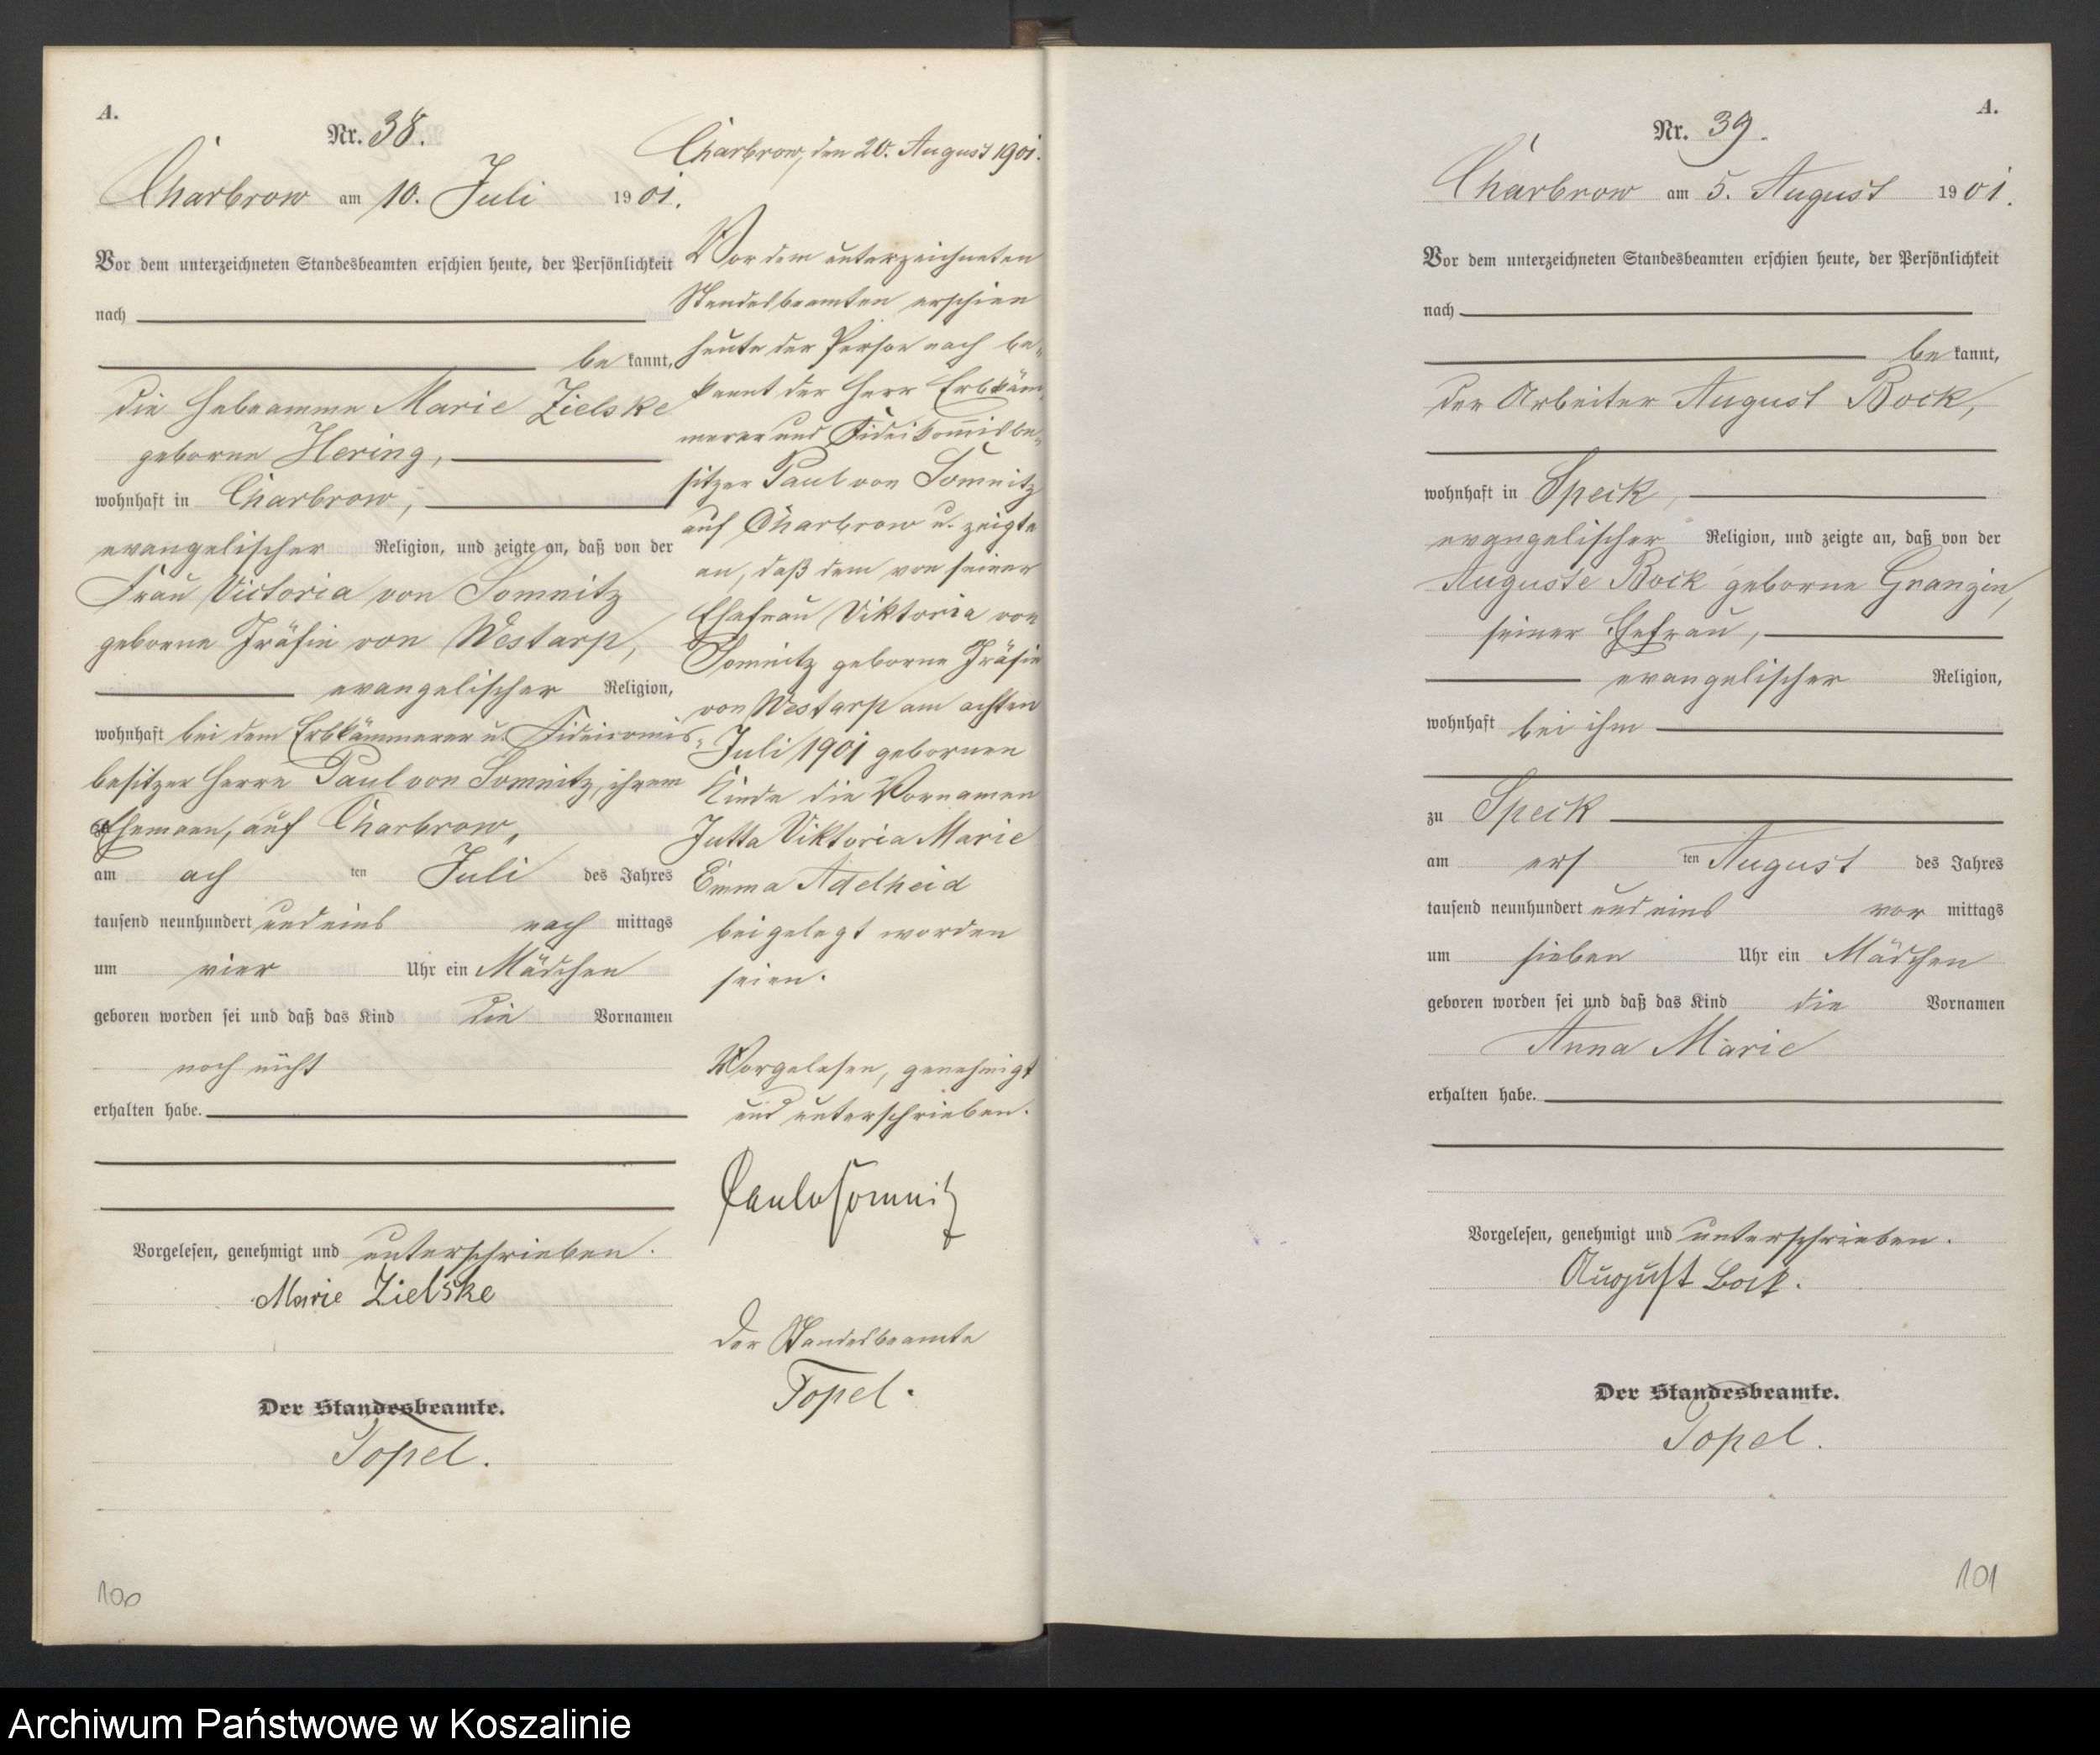 A.
Nr. 38.
Charbrow am 10. Juli 1901.
Vor dem unterzeichneten Standesbeamten erschien heute, der Persönlichkeit
nach
be kannt,
die Hebeamme Marie Zielske
geborne Hering,
wohnhaft in Charbrow,
evangelischer Religion, und zeigte an, daß von der
Frau Victoria von Somnitz
geborne Gräfin von Westarp,
evangelischer Religion,
wohnhaft bei dem Erbkämmerer u. Fideicomis-
besitzer Herrn Paul von Somnitz, ihrem
Ehemann, auf Charbrow,
am ach ten Juli des Jahres
tausend neunhundert und eins nach mittags
um vier Uhr ein Mädchen
geboren worden sei und daß das Kind die Vornamen
noch nicht
erhalten habe.
Vorgelesen, genehmigt und unterschrieben.
Marie Zielske
Der Standesbeamte.
Topel.
100
Charbrow, den 20. August 1901.
Vor dem unterzeichneten
Standesbeamten erschien
heute der Person nach be-
kannt der Herr Erbkäm-
merer und Fideikom̅isbe-
sitzer Paul von Somnitz
auf Charbrow u. zeigte
an, daß dem von seiner
Ehefrau Viktoria von
Somnitz geborne Gräfin
von Westarp am achten
Juli 1901 gebornen
Kinde die Vornamen
Jutta Viktoria Marie
Emma Adelheid
beigelegt worden
seien.
Vorgelesen, genehmigt
und unterschrieben.
Paul v Somnitz
Der Standesbeamte
Topel.
A.
Nr. 39.
Charbrow am 5. August 1901.
Vor dem unterzeichneten Standesbeamten erschien heute, der Persönlichkeit
nach
be kannt,
der Arbeiter August Bock,
wohnhaft in Speck,
evangelischer Religion, und zeigte an, daß von der
Auguste Bock geborne Granzin,
seiner Ehefrau,
evangelischer Religion,
wohnhaft bei ihm
zu Speck
am ers ten August des Jahres
tausend neunhundert und eins vor mittags
um sieben Uhr ein Mädchen
geboren worden sei und daß das Kind die Vornamen
Anna Marie
erhalten habe.
Vorgelesen, genehmigt und unterschrieben.
August Bock.
Der Standesbeamte.
Topel.
101
Archiwum Państwowe w Koszalinie